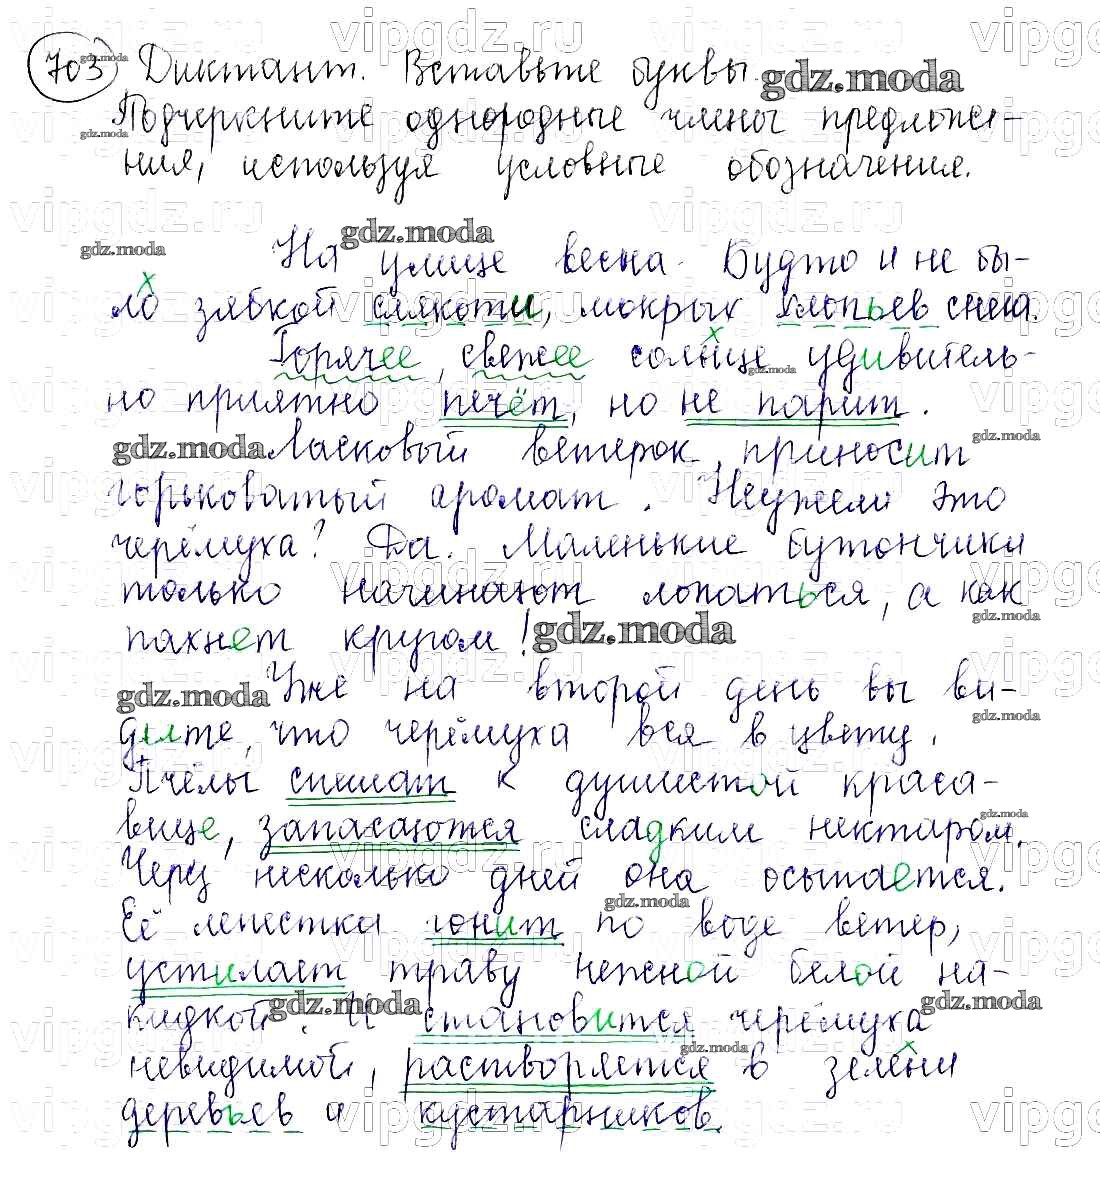 703 Диктант. Вставьте буквы.
Подчеркните однородные члены предложе-
ния, используя условные обозначения.
На улице весна. Будто и не бы-
ло зябкой слякоти, мокрых хлопьев снега.
Горячее, свежее солнце удивитель-
но приятно печёт, но не парит.
Ласковый ветерок приносит
горьковатый аромат. Неужели это
черёмуха? Да. Маленькие бутончики
только начинают лопаться, а как
пахнет кругом!
Уже на второй день вы ви-
дите, что черёмуха вся в цвету.
Пчёлы спешат к душистой краса-
вице, запасаются сладким нектаром.
Через несколько дней она осыпается.
Её лепестка гонит по воде ветер,
устилает траву нежной белой на-
кидкой. И становится черёмуха
невидимой, растворяется в зелени
деревьев и кустарников.
gdz.moda
vipgdz.ru